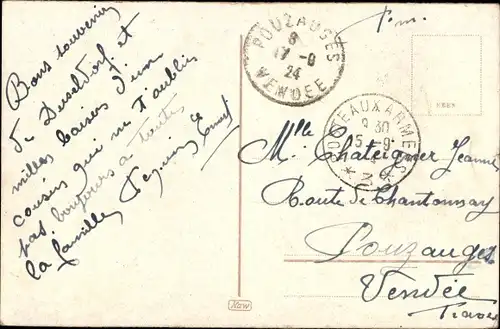 Bons souvenirs
de Dusseldorf et
milles baisers d'un
cousin que ne t'oublies
pas. bonjours a toute
la famille
F.m.
POUZAUGES
8
17 -9
24
VENDÉE
POSTE AUX ARMÉES
9 30
15 -9
24
Mlle Chateigner Jeanne
Route de Chantonnay
Pouzauges
Vendée